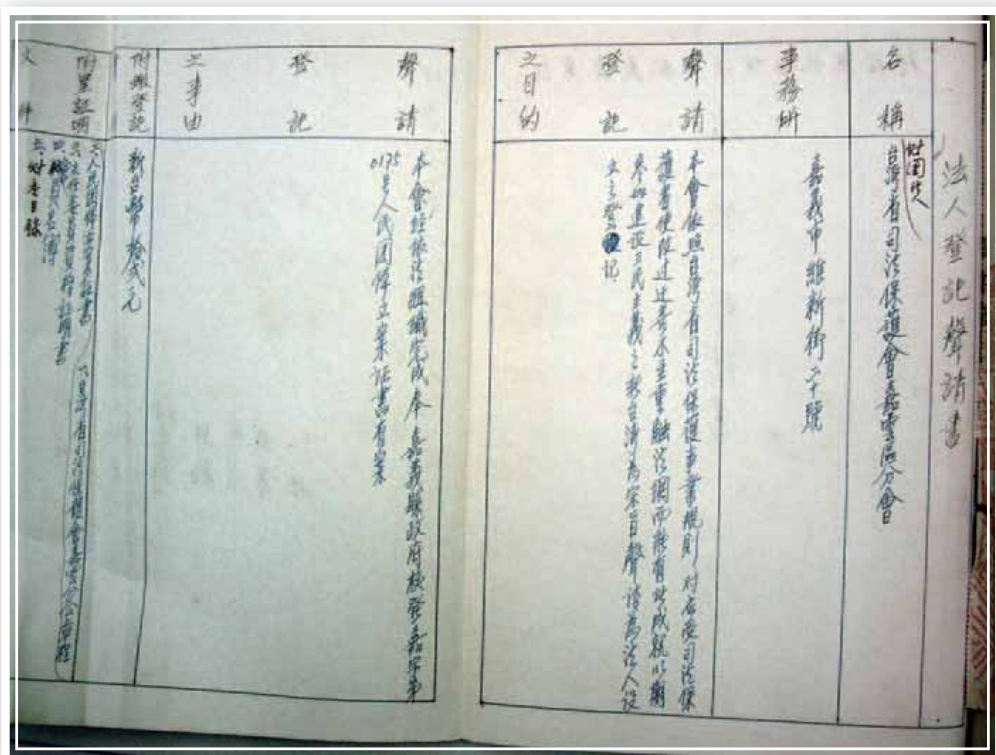 法人登記聲請書
名稱
財團法人
台灣省司法保護會嘉雲區分會
事務所
嘉義市維新街二十號
聲請
登記
之目的
本會依照台灣省司法保護事業規則對應受司法保
護者使改過遷善不重觸法網而能有所成就以期
參加建設三民主義之新台灣為宗旨聲請為法人設
立之登記
聲請
登記
之事由
本會經依法組織完成奉嘉義縣政府核發嘉字第
0175號人民團體立案証書有案
附繳登記
新台幣拾弍元
附呈証明
文件
人民團體立案証書
主任委員資格証明書
會員名簿
財產目錄
六、台灣省司法保護會嘉雲分會章程